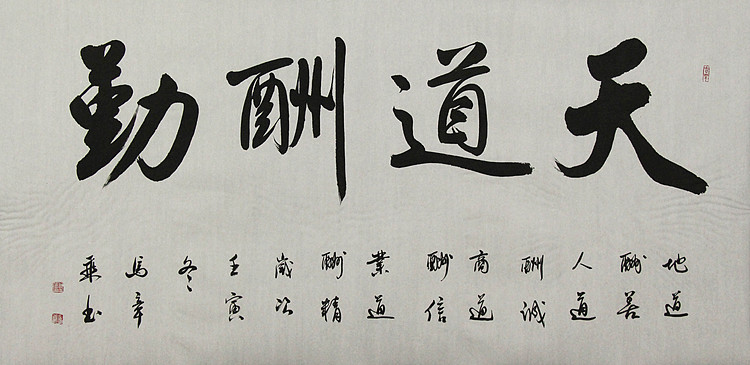 天道酬勤
地道
酬善
人道
酬诚
商道
酬信
業道
酬精
歲次
壬寅
冬
馬章
乘书